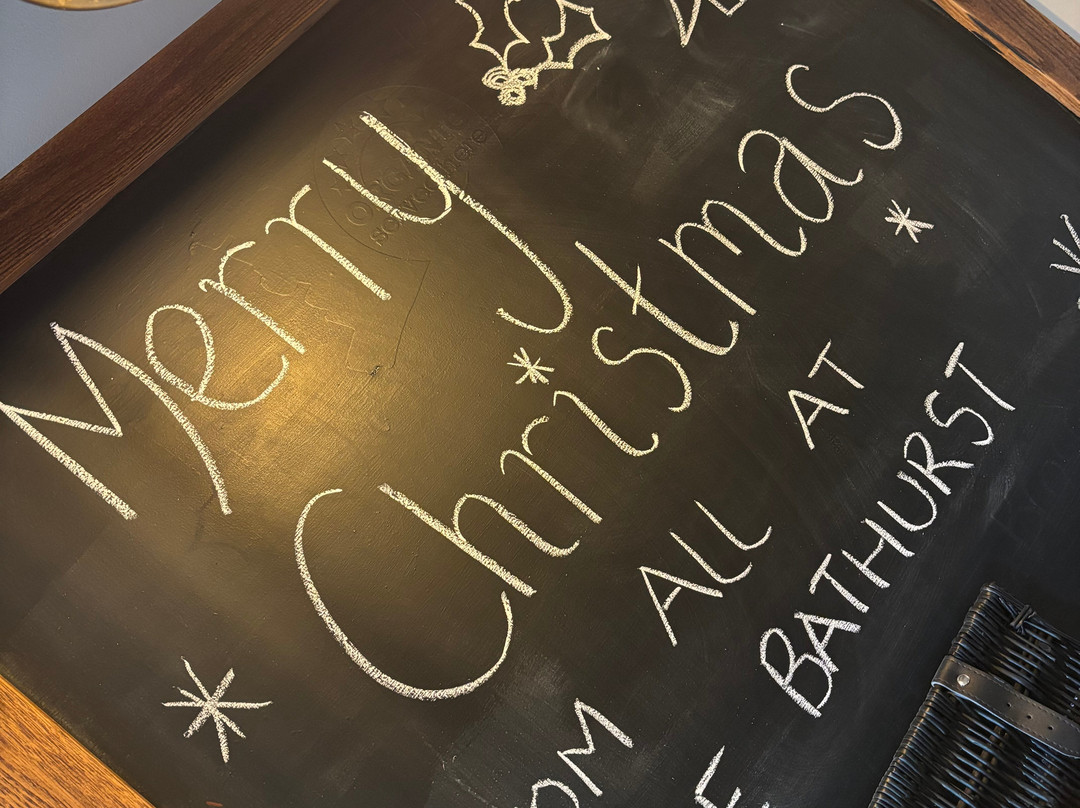 Merry
Christmas
OM ALL AT
E BATHURST